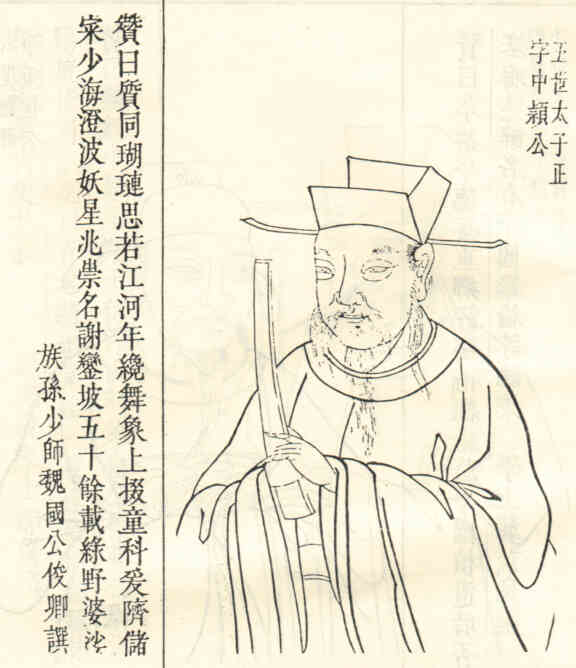 五世太子正
字中穎公
贊曰質同瑚璉思若江河年纔舞象上掇童科爰隮儲
寀少海澄波妖星兆祟名謝鑾坡五十餘載綠野婆娑
族孫少師魏國公俊卿譔